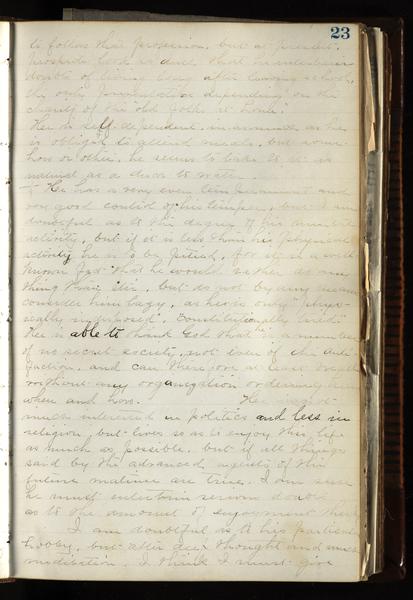 23
to follow that profession, but at present,
prospects look so dark that he entertains
doubts of living long after leaving school,
the only foundation depending on the
charity of the "old folks at home."
He is self-dependent, in as much as he
is obliged to attend meals, but some
how or other, he seems to take to it as
natural as a duck to water.
He has a very even temperament and
very good control of his temper, but I am
doubtful as to the degree of his
activity, but if it is less than his physical
activity he is to be pitied, for it is a well
known fact that he would rather do any
thing than stir, but do not by any means
consider him lazy, as he is only "phys-
ically indisposed", "constitutionally tired."
He is able to thank God that he is a member
of no secret society, not even of the Anti
faction, and can therefore at least
without any organization
when and how. He is not
much interested in politics and less in
religion, but lives so as to enjoy this life
as much as possible, but if all things
said by the advanced agents of the
future matinee are true, I am sure
he must entertain serious doubts
as to the amount of enjoyment there
I am doubtful as to his particular
hobby, but after deep thought and much
meditation, I think I must give